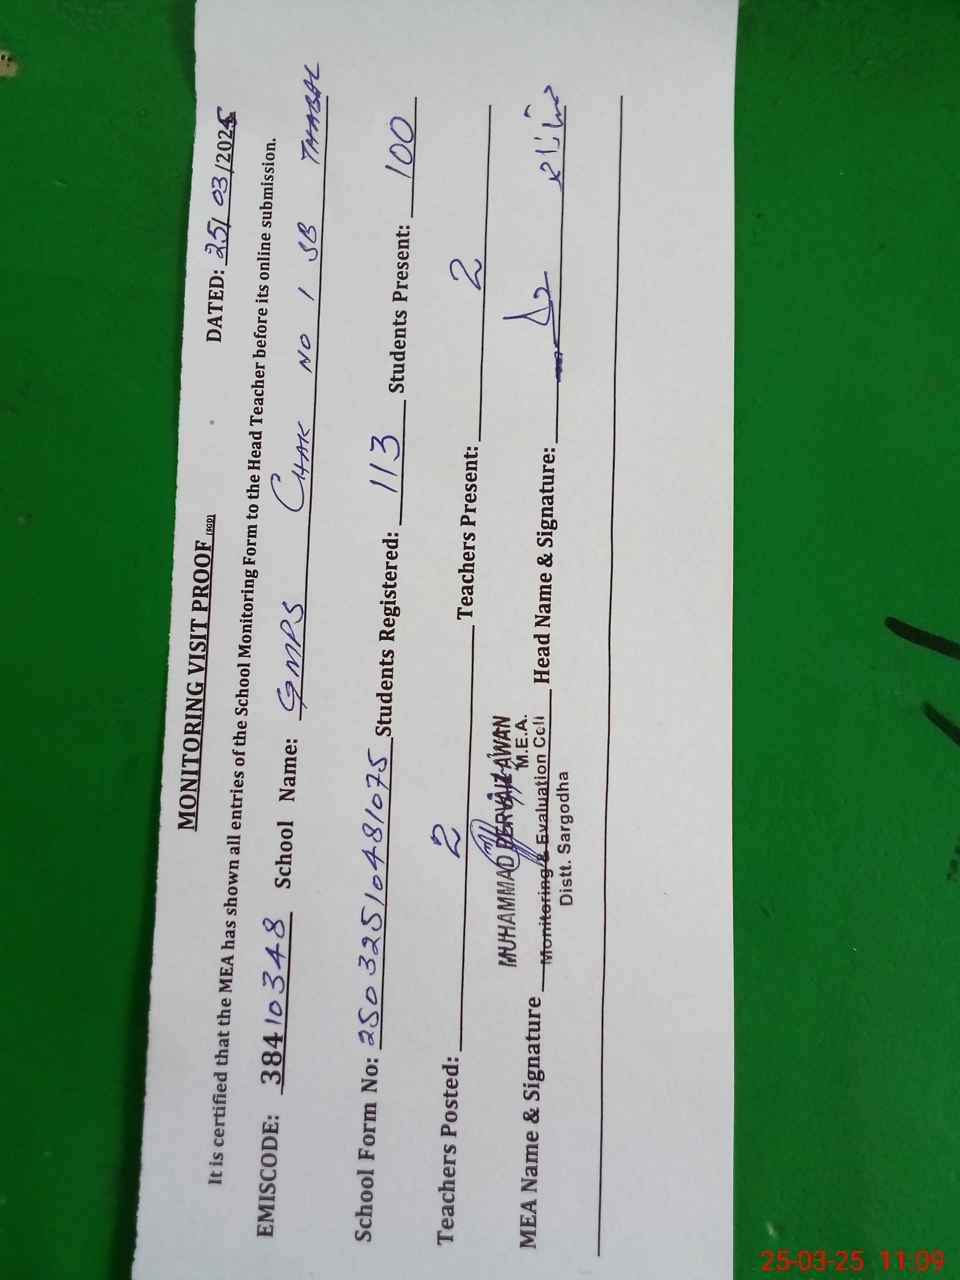 MONITORING VISIT PROOF (SGD) DATED: 25/03/2025
It is certified that the MEA has shown all entries of the School Monitoring Form to the Head Teacher before its online submission.
EMISCODE: 38410348 School Name: GMPS CHAK NO 1 SB THABAL
School Form No: 25032510481075 Students Registered: 113 Students Present: 100
Teachers Posted: 2 Teachers Present: 2
MEA Name & Signature Head Name & Signature:
MUHAMMAD PERVAIZ AWAN
M.E.A.
Monitoring & Evaluation Cell
Distt. Sargodha
25-03-25 11:09